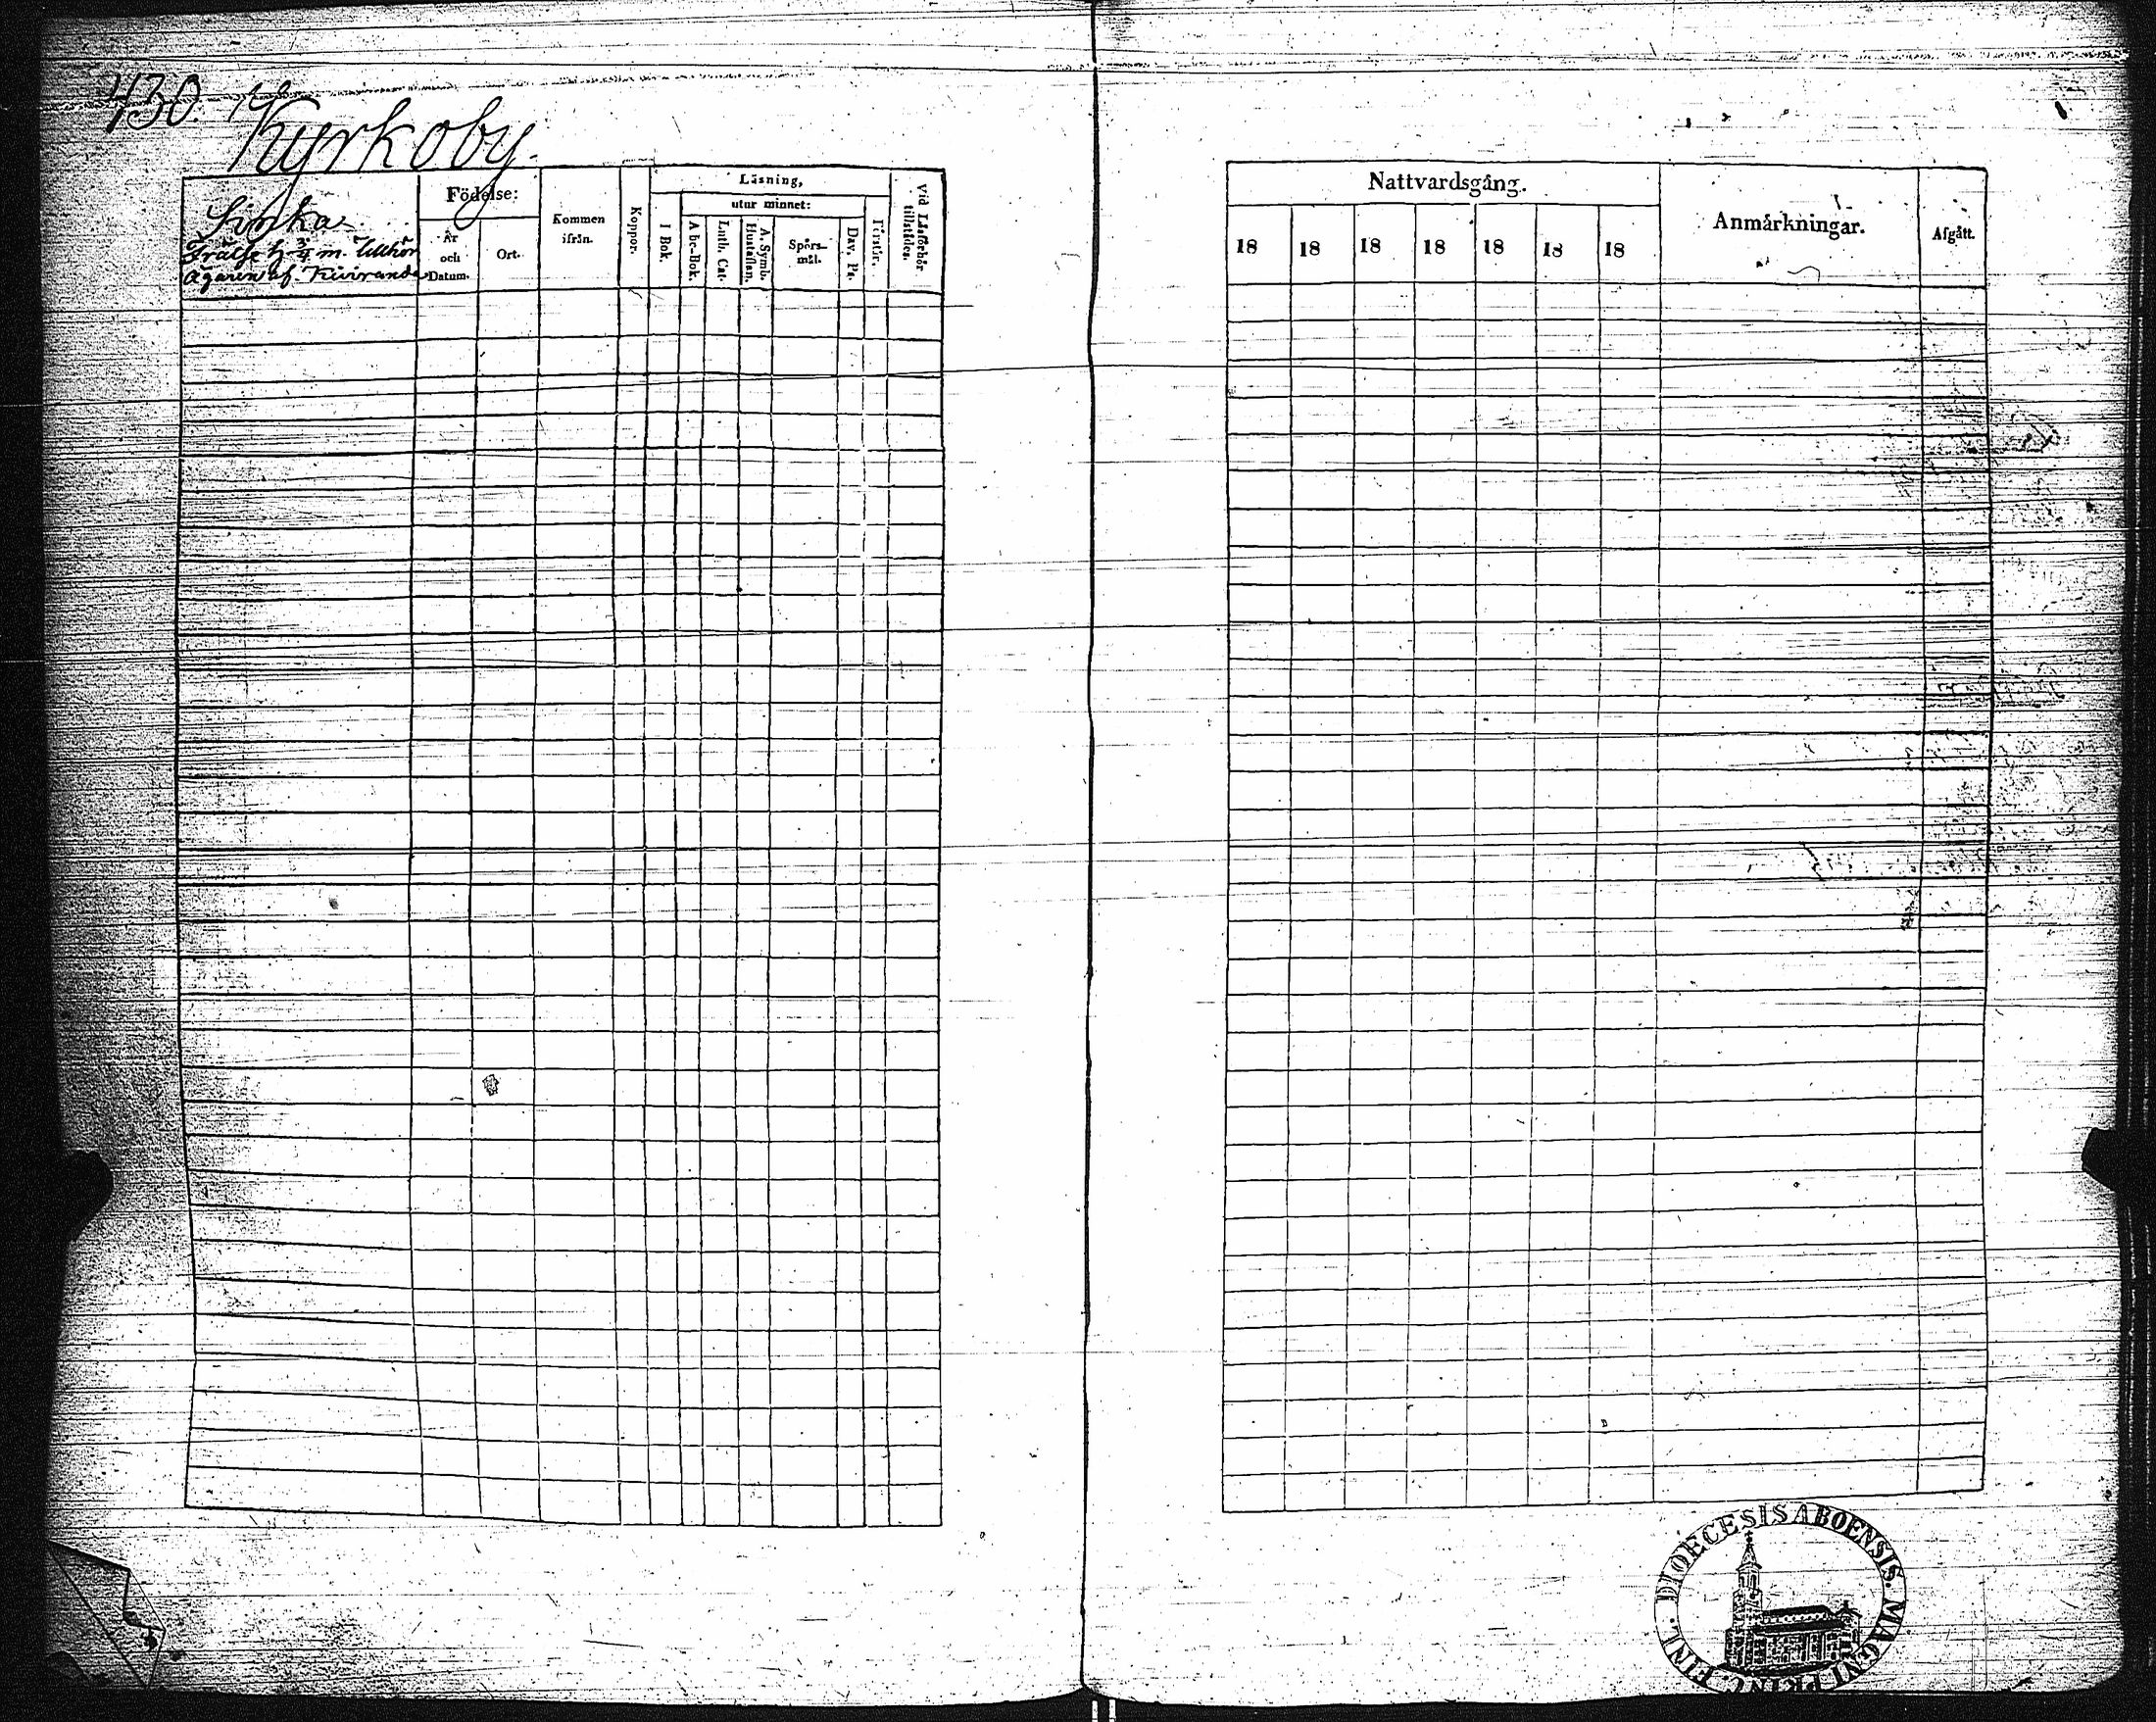 430.
Kyrkoby.
Sipka
Frälse h 3/4 m. tillhör
Ägaren af Kiviranda
Födelse:
År
och
Datum.
Ort.
Kommen
ifrån.
Koppor.
Läsning,
utur minnet:
I Bok.
A bc-Bok.
Luth. Cat.
A. Symb.
Hustaflan.
Spörs-
mål.
Dav. Ps.
Förstår.
Vid Läsförhör
tillstädes.
Nattvardsgång.
18 18 18 18 18 18 18
Anmärkningar.
Afgått.
DIOECESIS ABOENSIS. MAGNI PRINC. FINL.